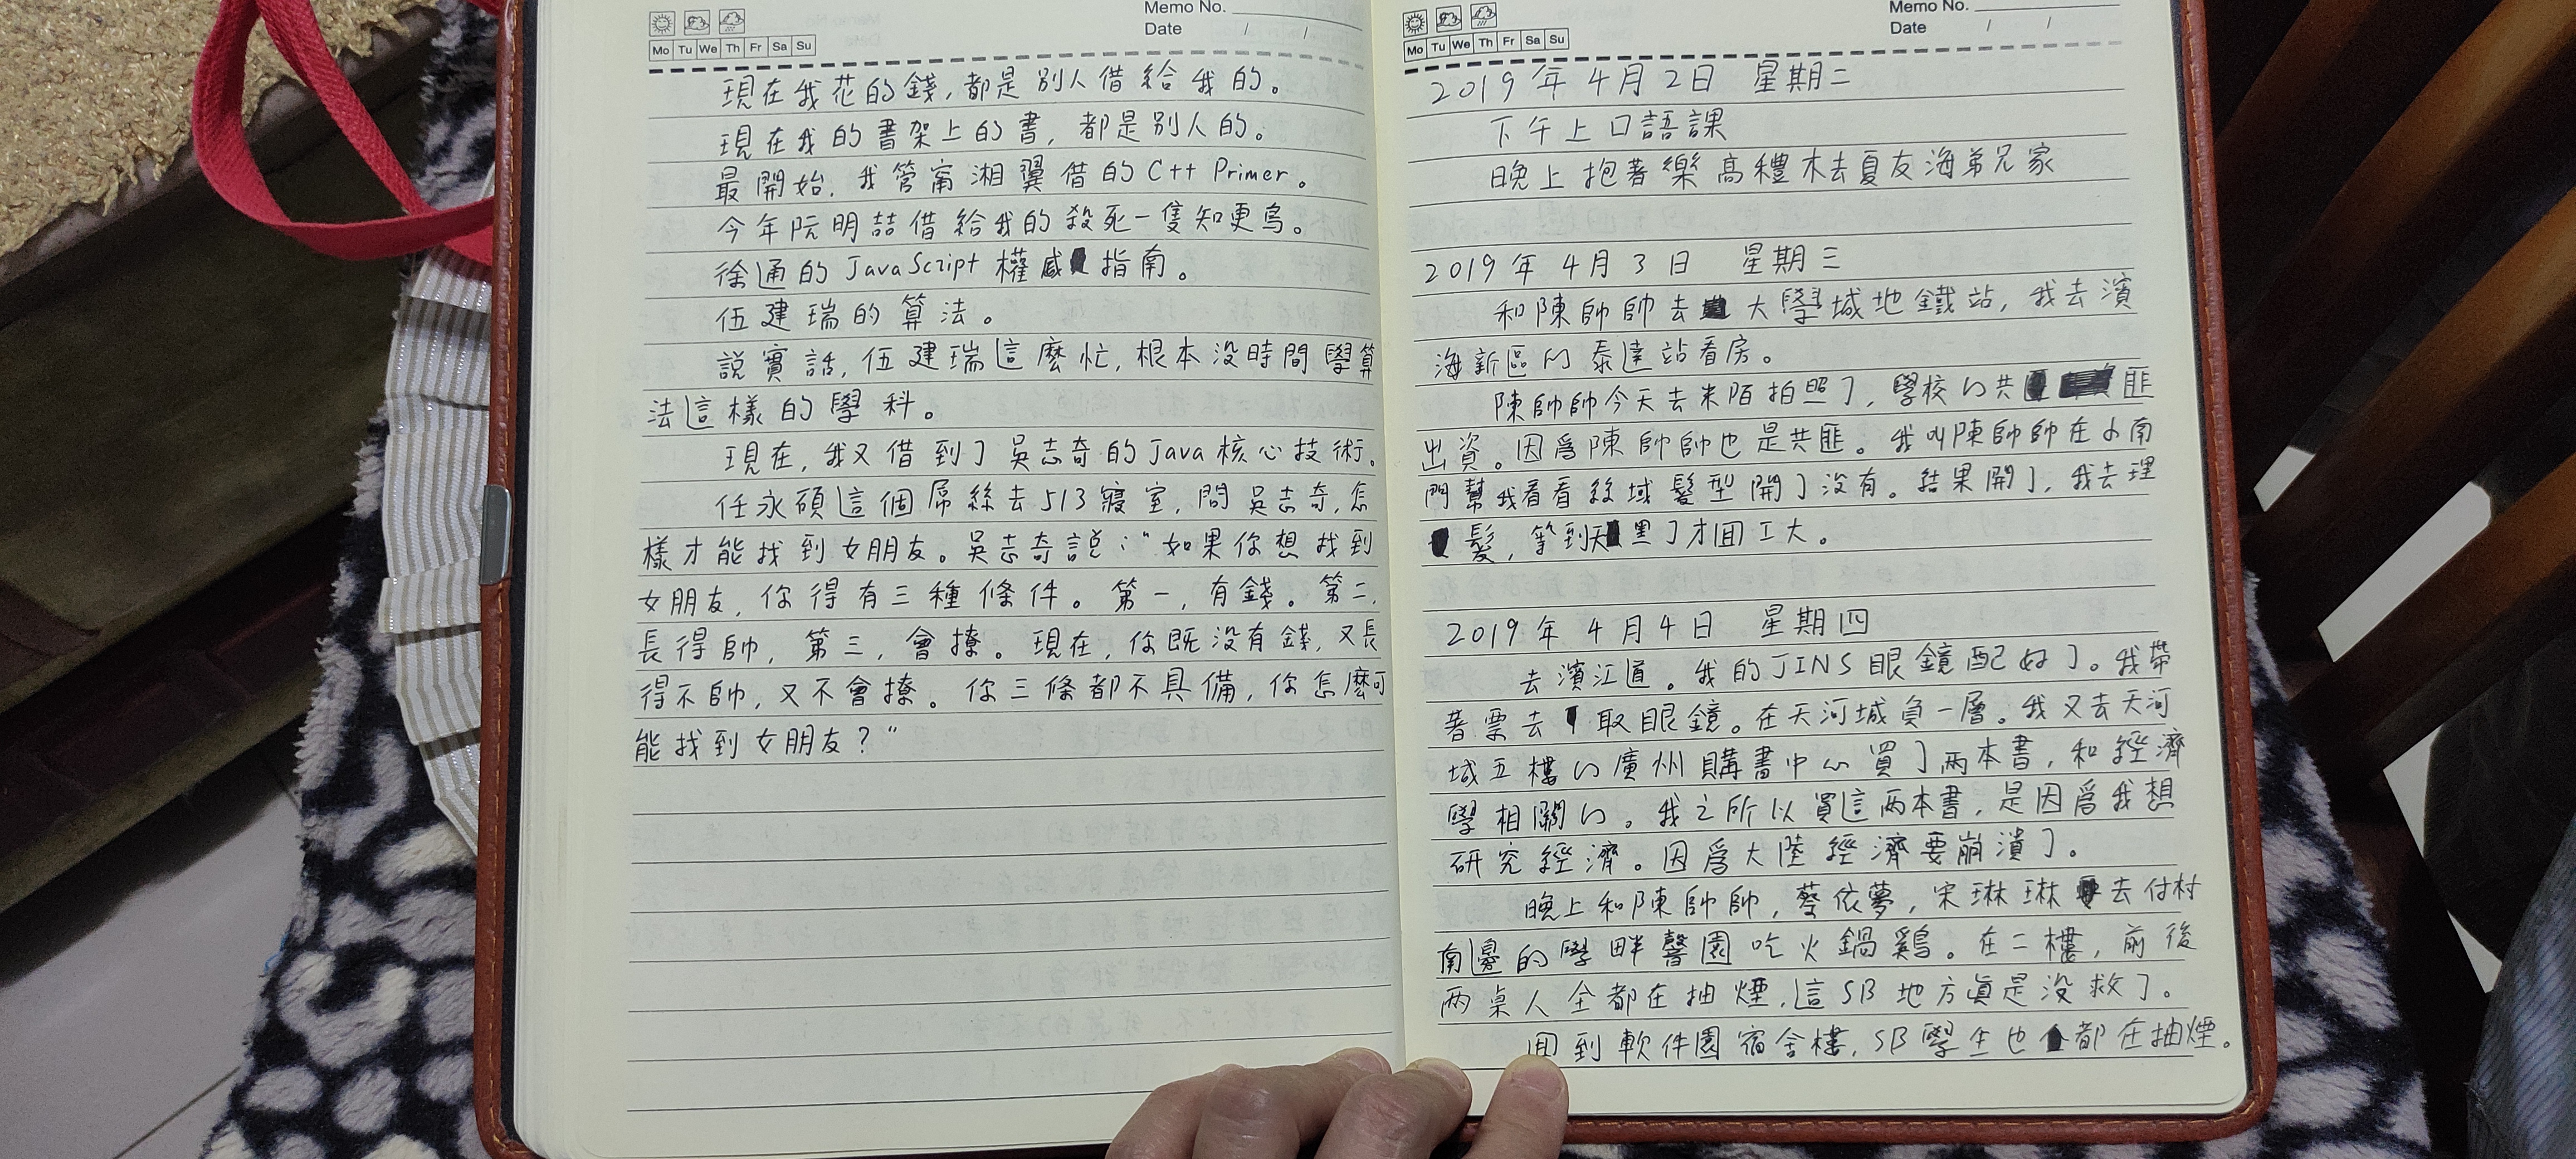 Memo No.
Date / /
Mo Tu We Th Fr Sa Su
現在我花的錢,都是別人借給我的。
現在我的書架上的書,都是別人的。
最開始,我管甯湘翼借的C++ Primer。
今年阮明喆借給我的殺死一隻知更鳥。
徐通的JavaScript權威指南。
伍建瑞的算法。
説實話,伍建瑞這麽忙,根本没時間學算
法這樣的學科。
現在,我又借到了吳志奇的Java核心技術。
任永碩這個屌絲去513寢室,問吳志奇,怎
樣才能找到女朋友。吳志奇説:“如果你想找到
女朋友,你得有三種條件。第一,有錢。第二,
長得帥,第三,會撩。現在,你既没有錢,又長
得不帥,又不會撩。你三條都不具備,你怎麽可
能找到女朋友?”
Memo No.
Date / /
Mo Tu We Th Fr Sa Su
2019年4月2日 星期二
下午上口語課
晚上抱著樂高積木去夏友海弟兄家
2019年4月3日 星期三
和陳帥帥去大學城地鐵站,我去濱
海新區的泰達站看房。
陳帥帥今天去米陌拍照了,學校的共匪
出資。因爲陳帥帥也是共匪。我叫陳帥帥在小南
門幫我看看絲域髮型開了没有。結果開了,我去理
髮,等到天黑了才回工大。
2019年4月4日 星期四
去濱江道。我的JINS眼鏡配好了。我帶
著票去取眼鏡。在天河城負一層。我又去天河
城五樓的廣州購書中心買了兩本書,和經濟
學相關的。我之所以買這兩本書,是因爲我想
研究經濟。因爲大陸經濟要崩潰了。
晚上和陳帥帥,蔡依夢,宋琳琳去付村
南邊的學畔馨園吃火鍋鷄。在二樓,前後
兩桌人全都在抽煙,這SB地方真是没救了。
回到軟件園宿舍樓,SB學生也都在抽煙。